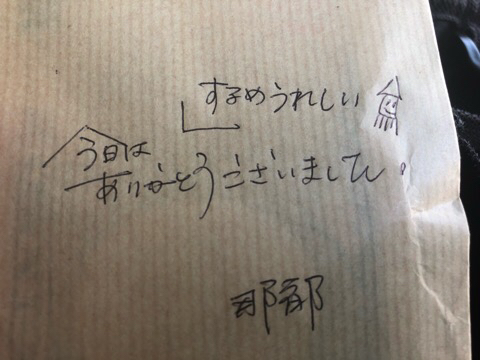 するめうれしい
今日は
ありがとうございました。